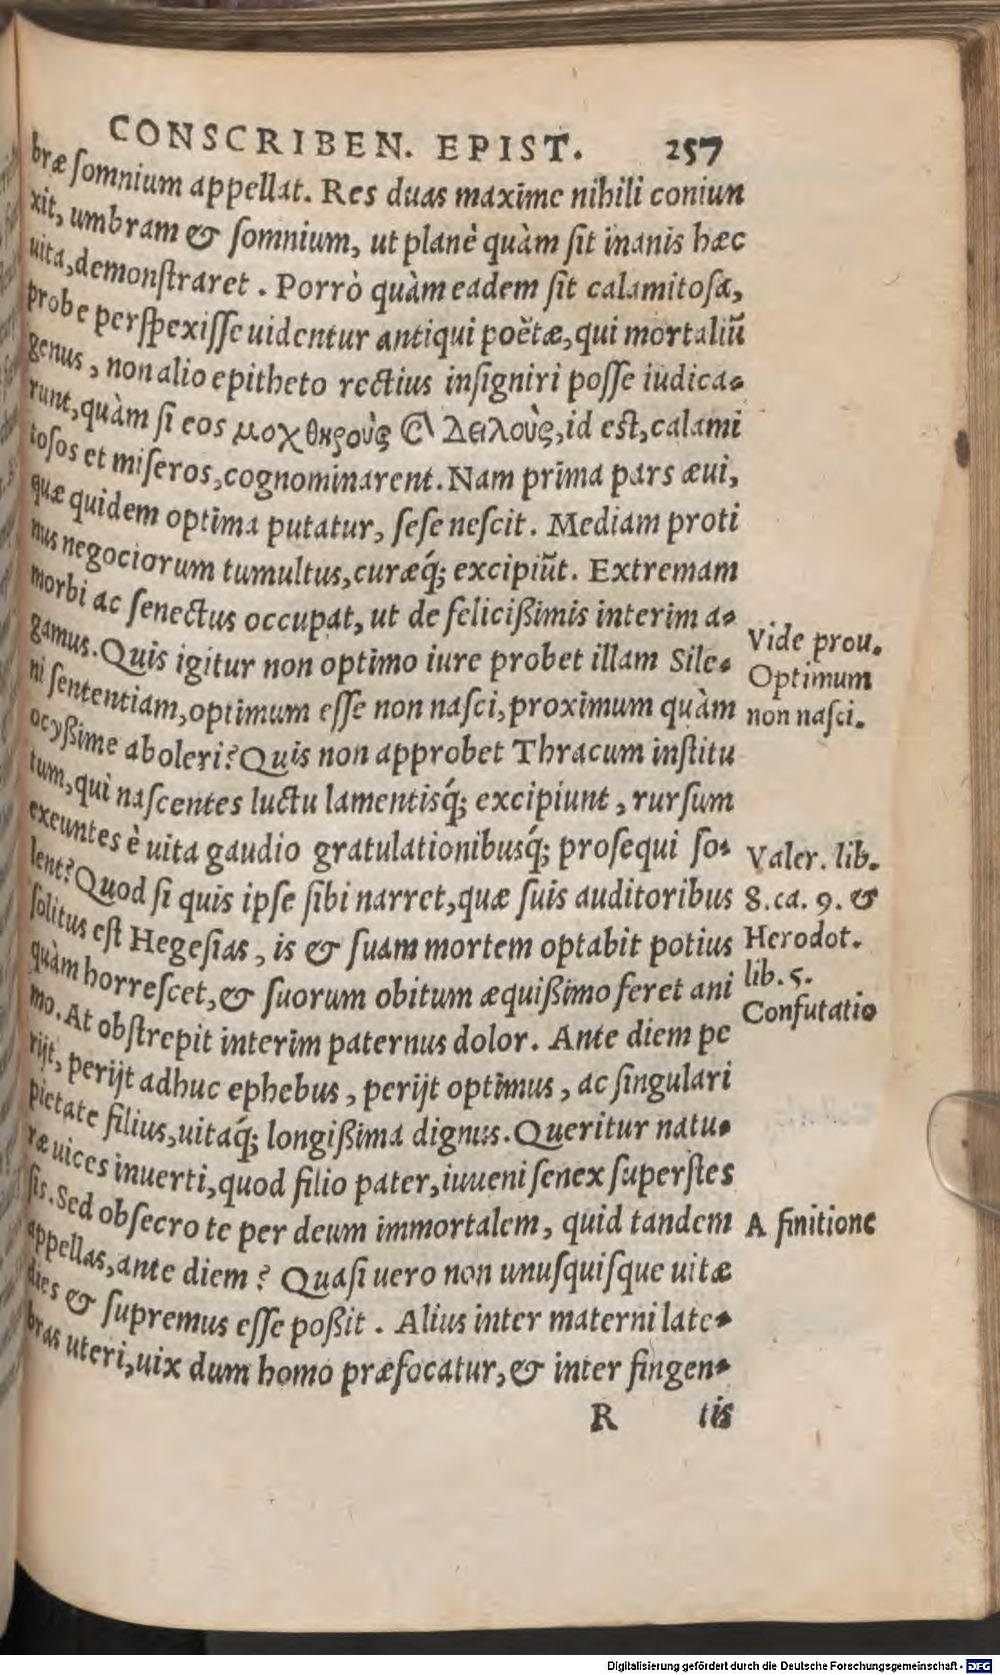 CONSCRIBEN. EPIST. 257
bræ ſomnium appellat. Res duas maxime nihili coniun
xit, umbram & ſomnium, ut planè quàm ſit inanis hæc
uita, demonſtraret. Porrò quàm eadem ſit calamitoſa,
probe perſpexiſſe uidentur antiqui poëtæ, qui mortaliũ
genus, non alio epitheto rectius inſigniri poſſe iudica-
runt, quàm ſi eos μοχθηροὺς ϗ Δειλοὺς, id eſt, calami
toſos et miſeros, cognominarent. Nam prima pars æui,
quæ quidem optima putatur, ſeſe neſcit. Mediam proti
nus negociorum tumultus, curæq́; excipiũt. Extremam
morbi ac ſenectus occupat, ut de felicißimis interim a-
gamus. Quis igitur non optimo iure probet illam Sile-
ni ſententiam, optimum eſſe non naſci, proximum quàm
ocyßime aboleri? Quis non approbet Thracum inſtitu
tum, qui naſcentes luctu lamentisq́; excipiunt, rurſum
exeuntes è uita gaudio gratulationibusq́; proſequi ſo-
lent? Quod ſi quis ipſe ſibi narret, quæ ſuis auditoribus
ſolitus eſt Hegeſias, is & ſuam mortem optabit potius
quàm horreſcet, & ſuorum obitum æquißimo feret ani
mo. At obſtrepit interim paternus dolor. Ante diem pe
rijt, perijt adhuc ephebus, perijt optimus, ac ſingulari
pietate filius, uitaq́; longißima dignus. Queritur natu-
ræ uices inuerti, quod filio pater, iuueni ſenex ſuperſtes
ſis. Sed obſecro te per deum immortalem, quid tandem
appellas, ante diem? Quaſi uero non unuſquiſque uitæ
dies & ſupremus eſſe poßit. Alius inter materni late-
bras uteri, uix dum homo præfocatur, & inter fingen-
R tis
Vide prou.
Optimum
non naſci.
Valer. lib.
8. ca. 9. &
Herodot.
lib. 5.
Confutatio
A finitione
Digitalisierung gefördert durch die Deutsche Forschungsgemeinschaft - DFG